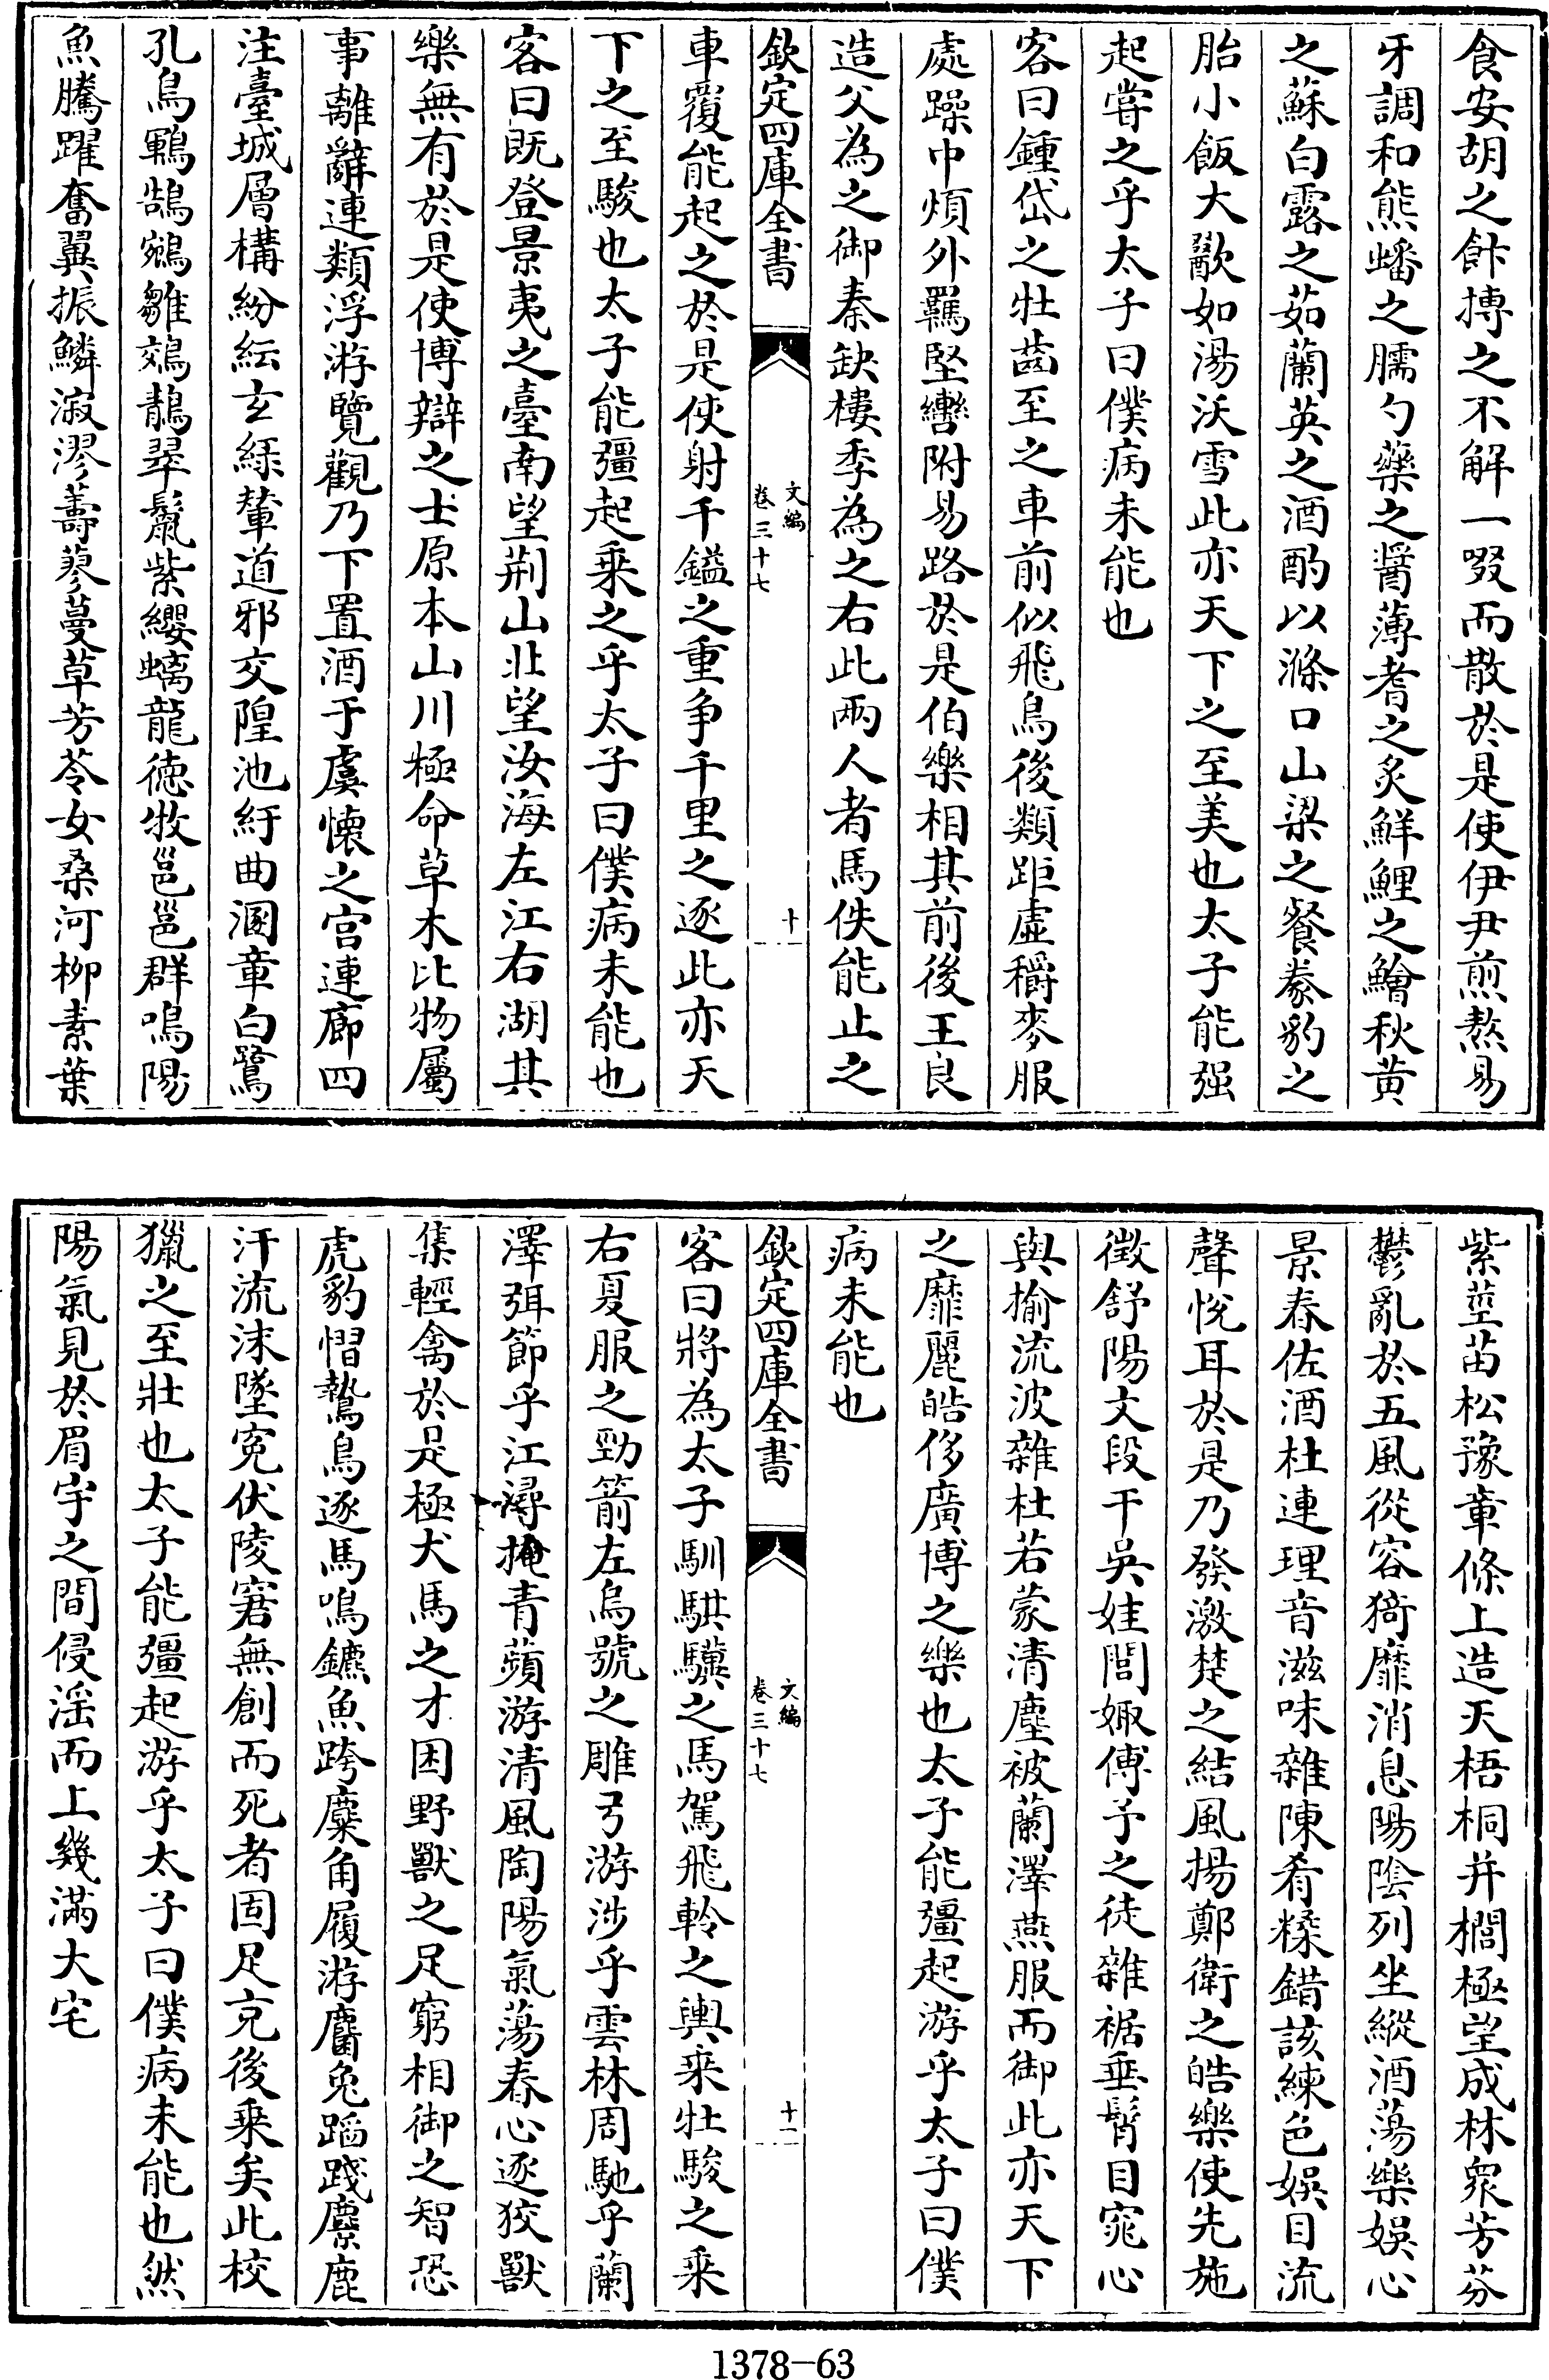 食安胡之飰摶之不解一啜而散於是使伊尹煎熬易
牙調和熊蟠之臑勺藥之醤薄耆之炙鮮鯉之鱠秋黄
之蘇白露之茹蘭英之酒酌以滌口山梁之餐豢豹之
胎小飯大歠如湯沃雪此亦天下之至美也太子能强
起嘗之乎太子曰僕病未能也
客曰鍾岱之牡齒至之車前似飛鳥後類距虛穱麥服
處躁中煩外羈堅轡附易路於是伯樂相其前後王良
造父為之御秦缺樓季為之右此兩人者馬佚能止之
欽定四庫全書
文編
卷三十七
十
車覆能起之於是使射千鎰之重争千里之逐此亦天
下之至駿也太子能彊起乗之乎太子曰僕病未能也
客曰既登景夷之臺南望荆山北望汝海左江右湖其
樂無有於是使博辯之士原本山川極命草木比物屬
事離辭連類浮游覽觀乃下置酒于虞懐之宫連廊四
注臺城層構紛紜玄緑輦道邪交隍池紆曲溷章白鷺
孔鳥鶤鵠鵷雛鵁鶄翠鬛紫纓螭龍徳牧邕邕群鳴陽
魚騰躍奮翼振鱗漃漻薵蓼蔓草芳苓女桑河柳素葉
紫莖苗松豫章條上造天梧桐并櫚極望成林衆芳芬
鬱亂於五風從容猗靡消息陽陰列坐縱酒蕩樂娱心
景春佐酒杜連理音滋味雜陳肴糅錯該練色娱目流
聲悅耳於是乃發激楚之結風揚鄭衛之皓樂使先施
徴舒陽文段干吳娃閭娵傅予之徒雜裾垂髾目窕心
與揄流波雜杜若蒙清塵被蘭澤燕服而御此亦天下
之靡麗皓侈廣博之樂也太子能彊起游乎太子曰僕
病未能也
欽定四庫全書
文編
卷三十七
十一
客曰將為太子馴騏驥之馬駕飛軨之輿乗牡駿之乗
右夏服之勁箭左烏號之雕弓游涉乎雲林周馳乎蘭
澤弭節乎江潯掩青蘋游清風陶陽氣蕩春心逐狡獸
集輕禽於是極犬馬之才困野獸之足窮相御之智恐
虎豹慴鷙鳥逐馬鳴鑣魚跨麋角履游麕兔蹈踐麖鹿
汗流沫墜寃伏陵窘無創而死者固足充後乗矣此校
獵之至壮也太子能彊起游乎太子曰僕病未能也然
陽氣見於眉宇之間侵淫而上幾滿大宅
1378-63